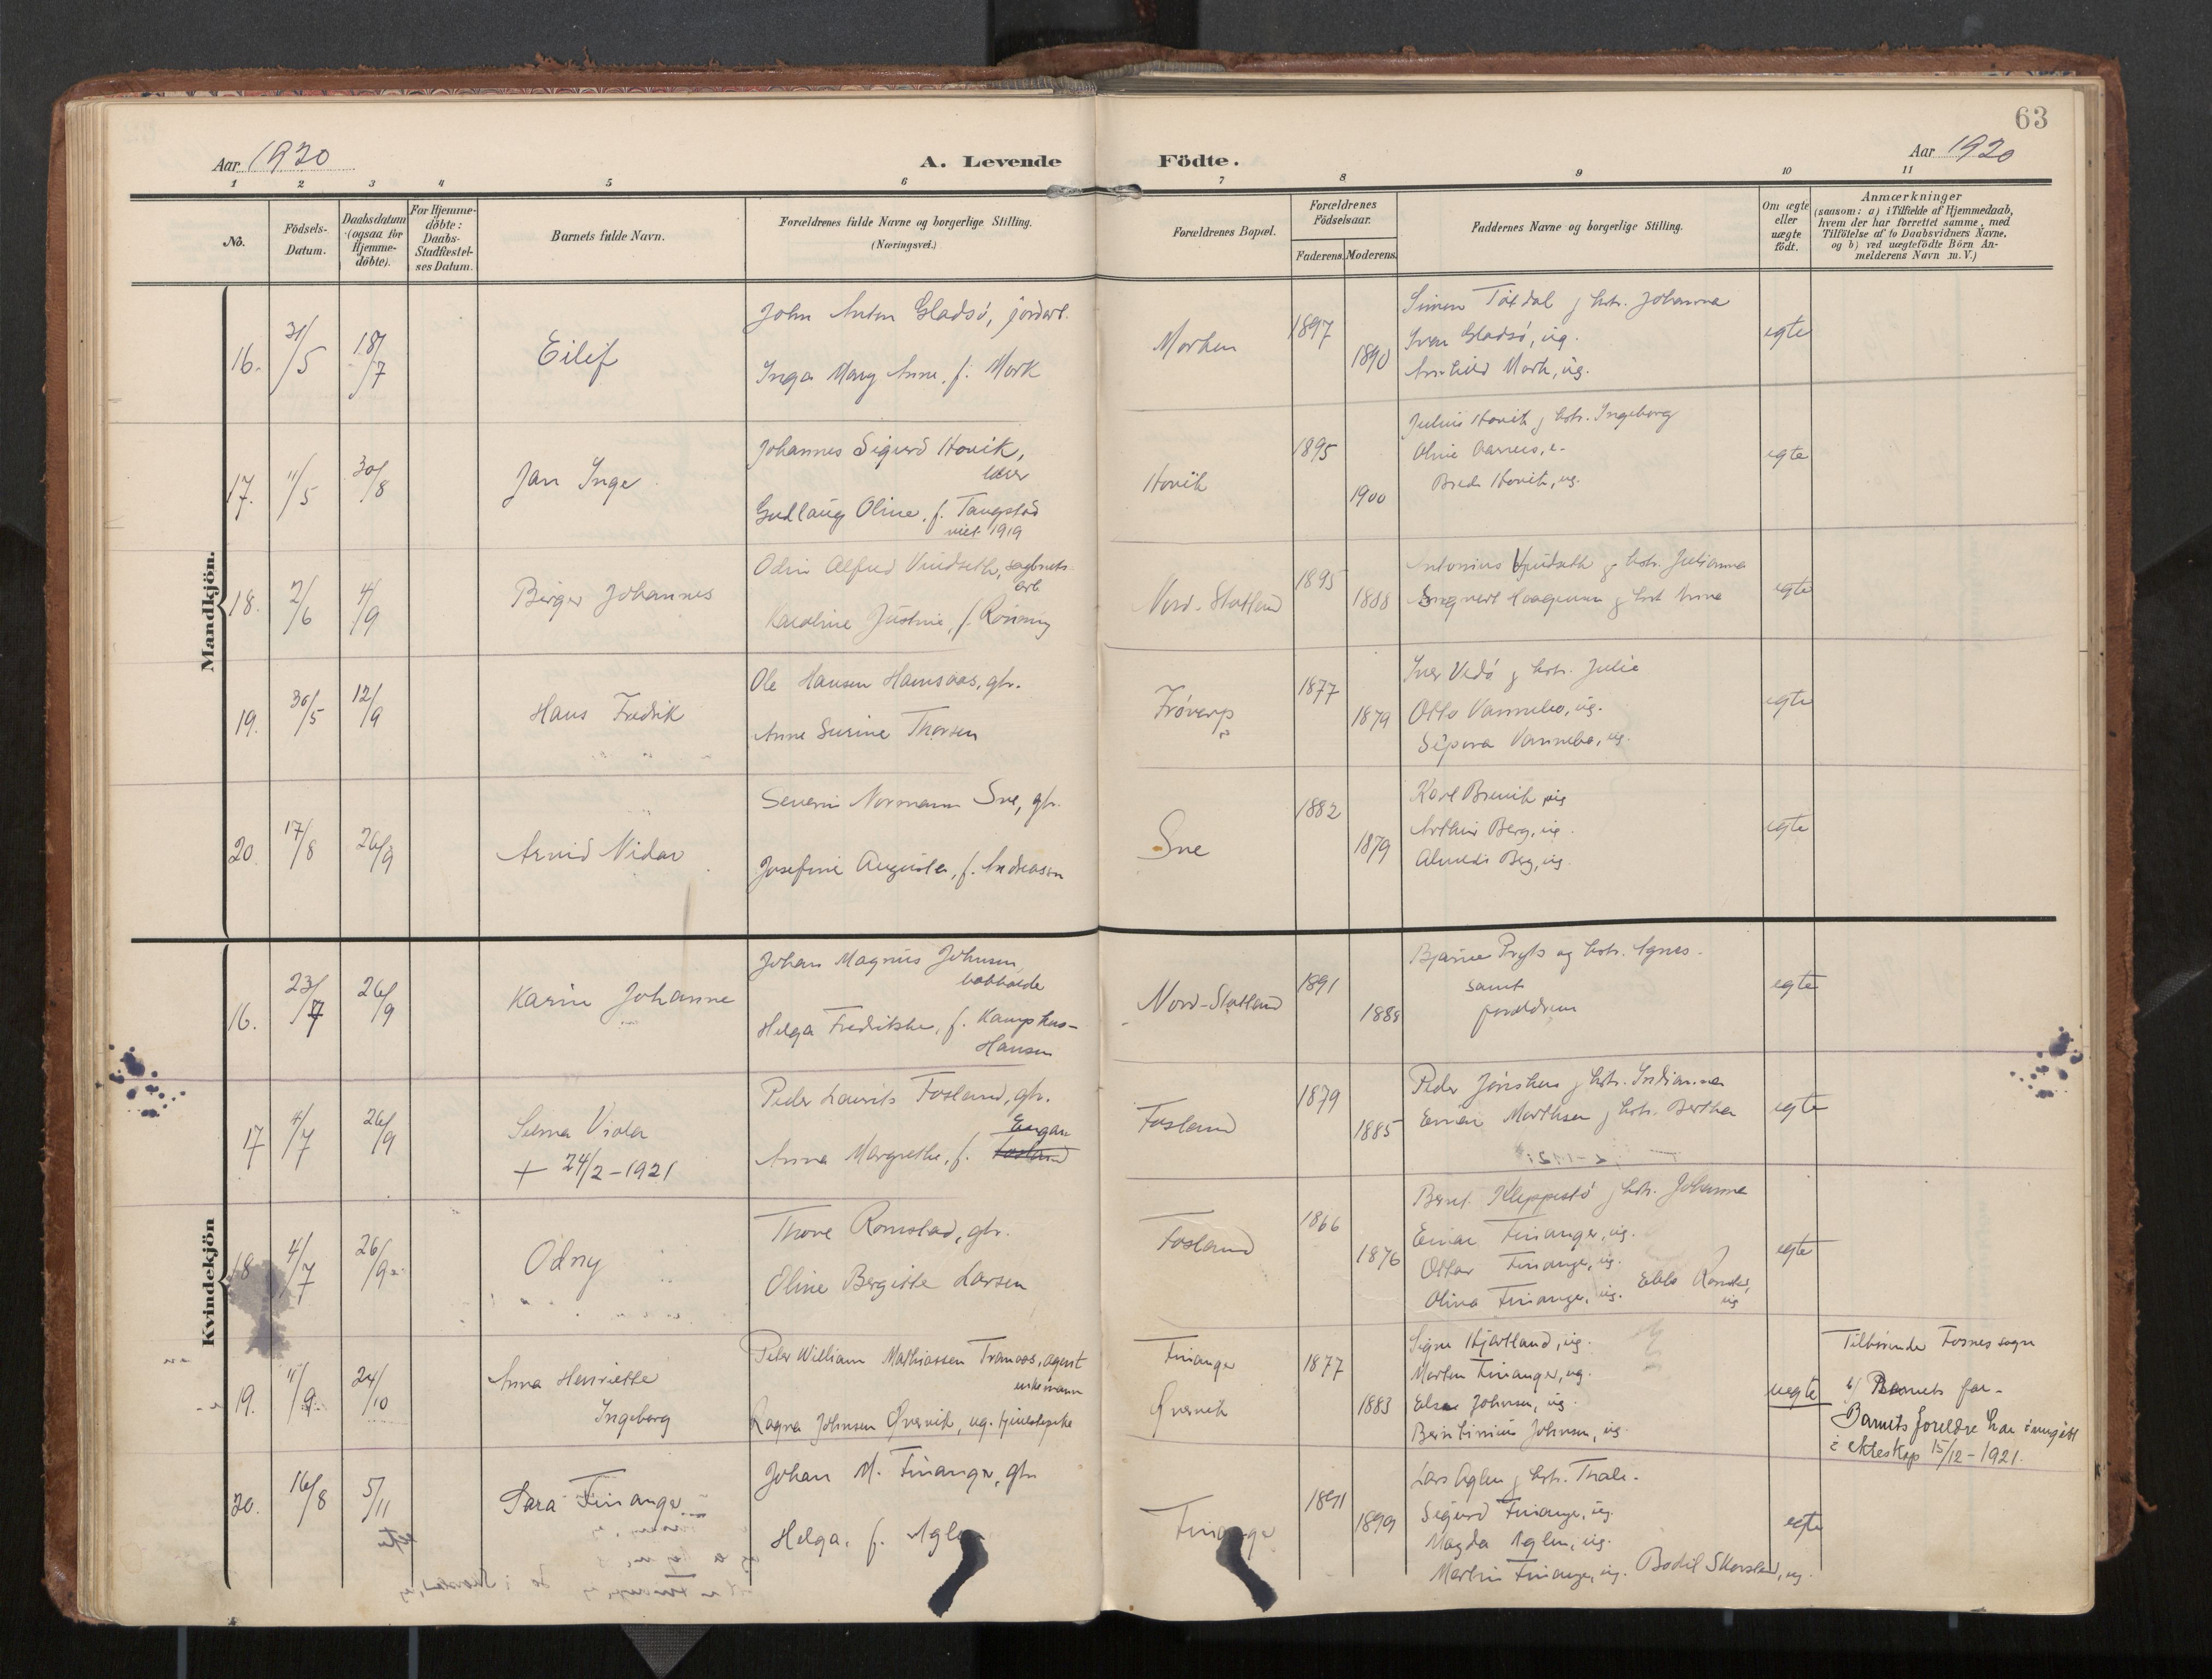 63
Aar 1920
A. Levende Födte.
Aar 1920
1 2 3 4 5 6 7 8 9 10 11
No.
Födsels-Datum.
Daabsdatum (ogsaa for Hjemme-döbte).
For Hjemme-döbte: Daabs-Stadfæstel-ses Datum.
Barnets fulde Navn.
Forældrenes fulde Navne og borgerlige Stilling.
(Næringsvei.)
Forældrenes Bopæl.
Forældrenes Födselsaar.
Faderens. Moderens.
Faddernes Navne og borgerlige Stilling.
Om ægte eller uægte födt.
Anmærkninger
(saasom: a) i Tilfælde af Hjemmedaab,
hvem der har forrettet samme, med
Tilföielse af to Daabsvidners Navne,
og b) ved uægtefödte Börn An-
melderens Navn m. V.)
Mandkjön.
16. 31/5 18/7 Eilif
John Anton Gladsö, jordarb.
Inga Mary Anne, f. Mork
Morken 1897 1890
hstr. Johanna
Iver Gladsö, ug.
Mork, ug.
egte
17. 11/5 30/8 Jan Inge
Johannes Sigurd Hovik,
Gudlaug Oline, f. Tangstad
viet 1919
Hovik 1895 1900
Julius Hovik & hstr. Ingeborg
Hovik, ug.
egte
18. 2/6 4/9 Birger Johannes
Odin Alfred Vindseth, sagbruks-
arb
Karoline Justine, f. Röning
Nord-Statland 1895 1888
Antonius Vindseth & hstr. Julianna
egte
19. 30/5 12/9 Hans Fredrik
Ole Hansen Hamsaas, gbr.
Anne Surine Thorsen
1877 1879
Iver Vedö & hstr. Julie
Otto Vannebo, ug.
Vannebo, ug.
egte
20. 17/8 26/9 Arvid Nidar
Severin Normann Sve, gbr.
Josefine Augusta, f. Andreasen
Sve 1882 1879
Karl Brevik, ug
Arthur Berg, ug.
Berg, ug.
egte
Kvindekjön
16. 23/7 26/9 Karin Johanne
Johan Magnus Johnsen
Helga Fredrikke, f. Kamphus-
Hansen
Nord-Statland 1891 1888
Bjarne Pryts og hstr. Agnes.
samt
forældrene
egte
17 4/7 26/9 Selma Viola
+ 24/2-1921
Peder Laurits Fosland, gbr.
Anna Margrethe, f. Fosland
Fosland 1879 1885
Peder & hstr.
Einar Morthsen & hstr. Berthea
egte
18 4/7 26/9 Odny
Thove Romstad, gbr.
Oline Bergitte Larsen
Fosland 1866 1876
Bernt Kleppestö & hstr. Johanna
Einar Finanger, ug.
Ottar Finanger, ug.
Olina Finanger, ug. Ebbe Romstad,
ug
egte
19. 11/9 24/10 Anna Henriette
Ingeborg
Peder William Mathiassen Tranaas, agent
enkemann
Ragna Johnsen Qvervik, ug. tjenestepike
Finanger
Qvervik
1877 1883
Signe Hjortland, ug.
Morten Finanger, ug.
Else Johnsen, ug.
Johnsen, ug.
uegte
Tilhörende Fosnes sogn
b) Barnets far-
Barnets foreldre har inngått
i ekteskap 15/12-1921.
20. 16/8 5/11 Sara Finanger
Johan M. Finanger, gbr
Helga, f. Aglen
Finanger 1891 1899
Lars Aglen & hstr. Thale.
Sigurd Finanger, ug.
Magda Aglen, ug.
Martin Finanger, ug. Bodil Skorstad, ug.
egte